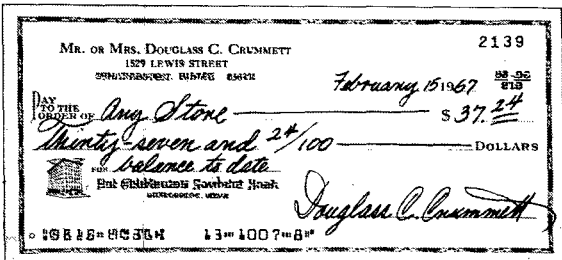 2139
MR. OR MRS. DOUGLASS C. CRUMMETT
1529 LEWIS STREET
February 15 1967
PAY TO THE ORDER OF Any Store $ 37.24
Thirty-seven and 24/100 DOLLARS
FOR balance to date
Douglass C. Crummett
13 1007 8